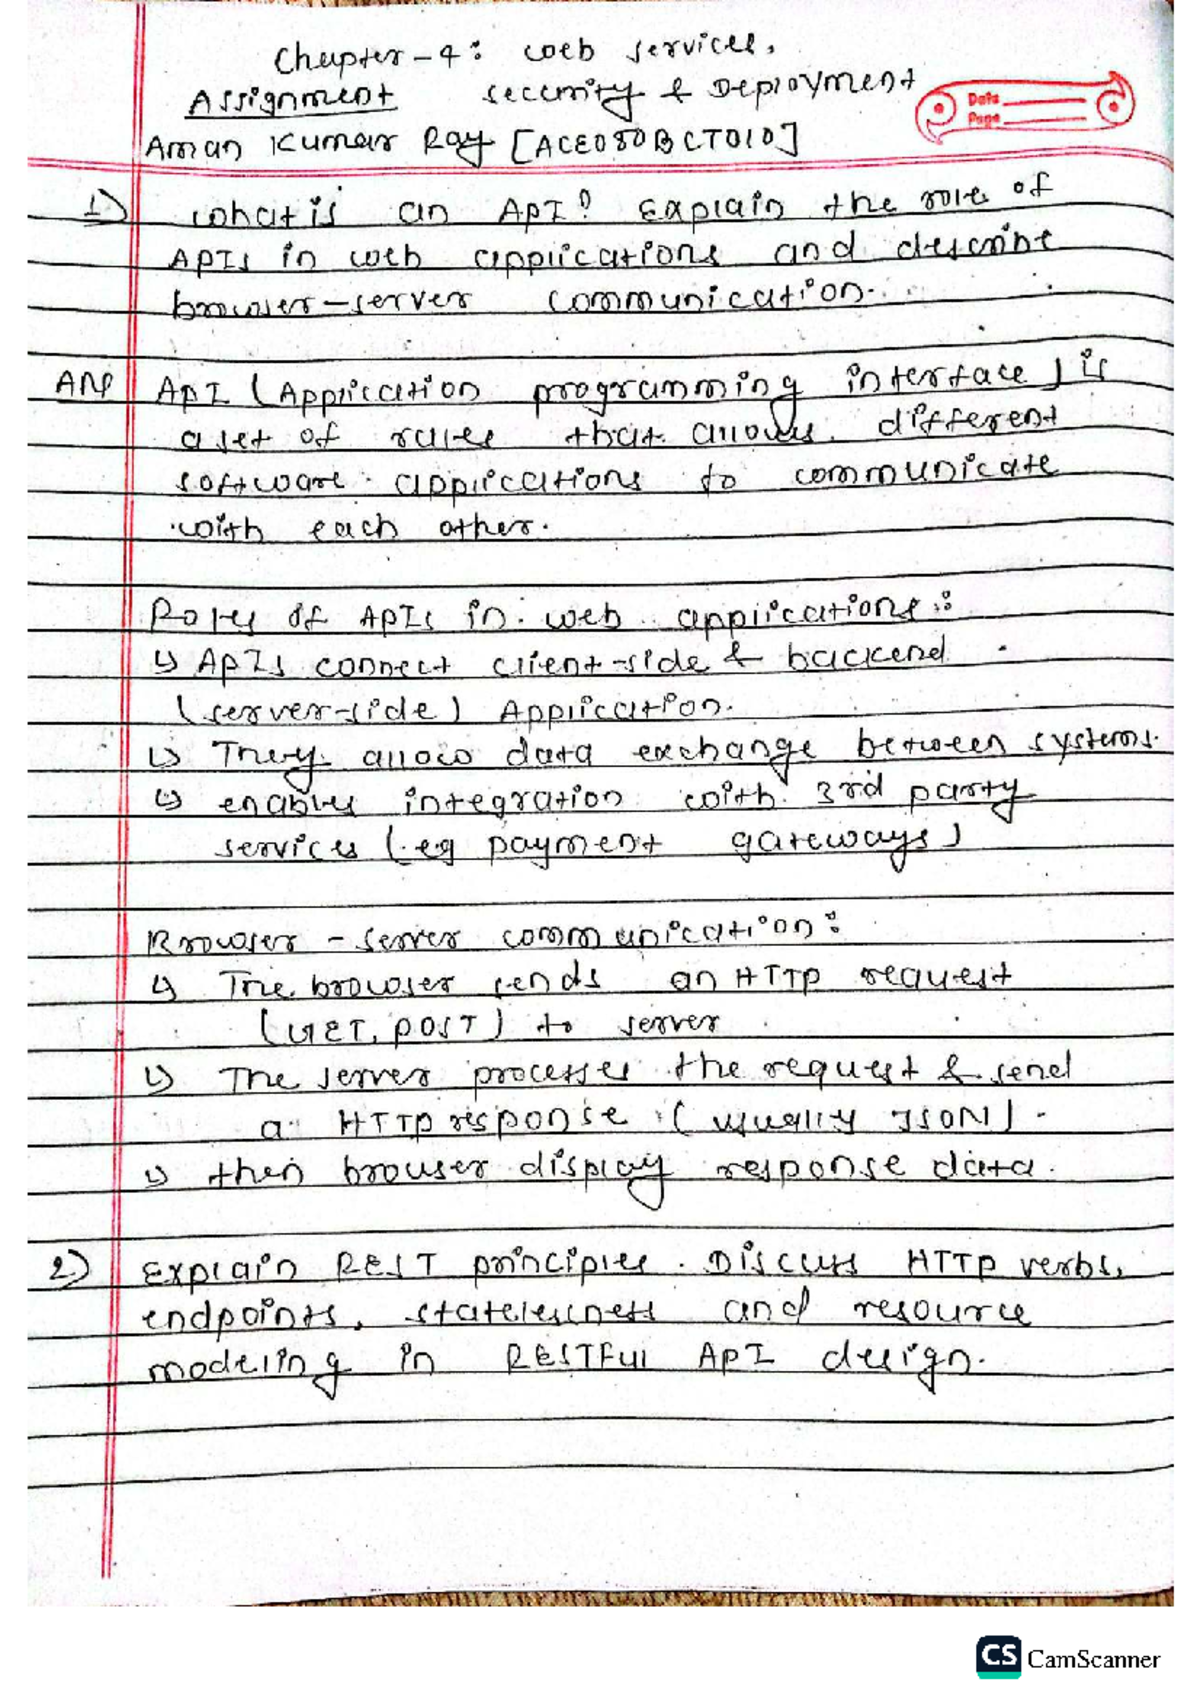 Chapter-4: Web services,
Assignment security & Deployment
Aman Kumar Ray [ACE080BCT010]
Date
Page
1) What is an API? Explain the role of
APIs in web applications and describe
browser-server communication.
Ans API (Application programming interface) is
a set of rules that allows different
software applications to communicate
with each other.
Roles of APIs in web applications:
↳ APIs connect client-side & backend
(server-side) Application.
↳ They allow data exchange between systems.
↳ enables integration with 3rd party
services (eg payment gateways)
Browser-server communication:
↳ The browser sends an HTTP request
(GET, POST) to server
↳ The server processes the request & send
a HTTP response (usually JSON).
↳ then browser display response data.
2) Explain REST principles. Discuss HTTP verbs,
endpoints, statelessness and resource
modeling in RESTFul API design.
CS CamScanner